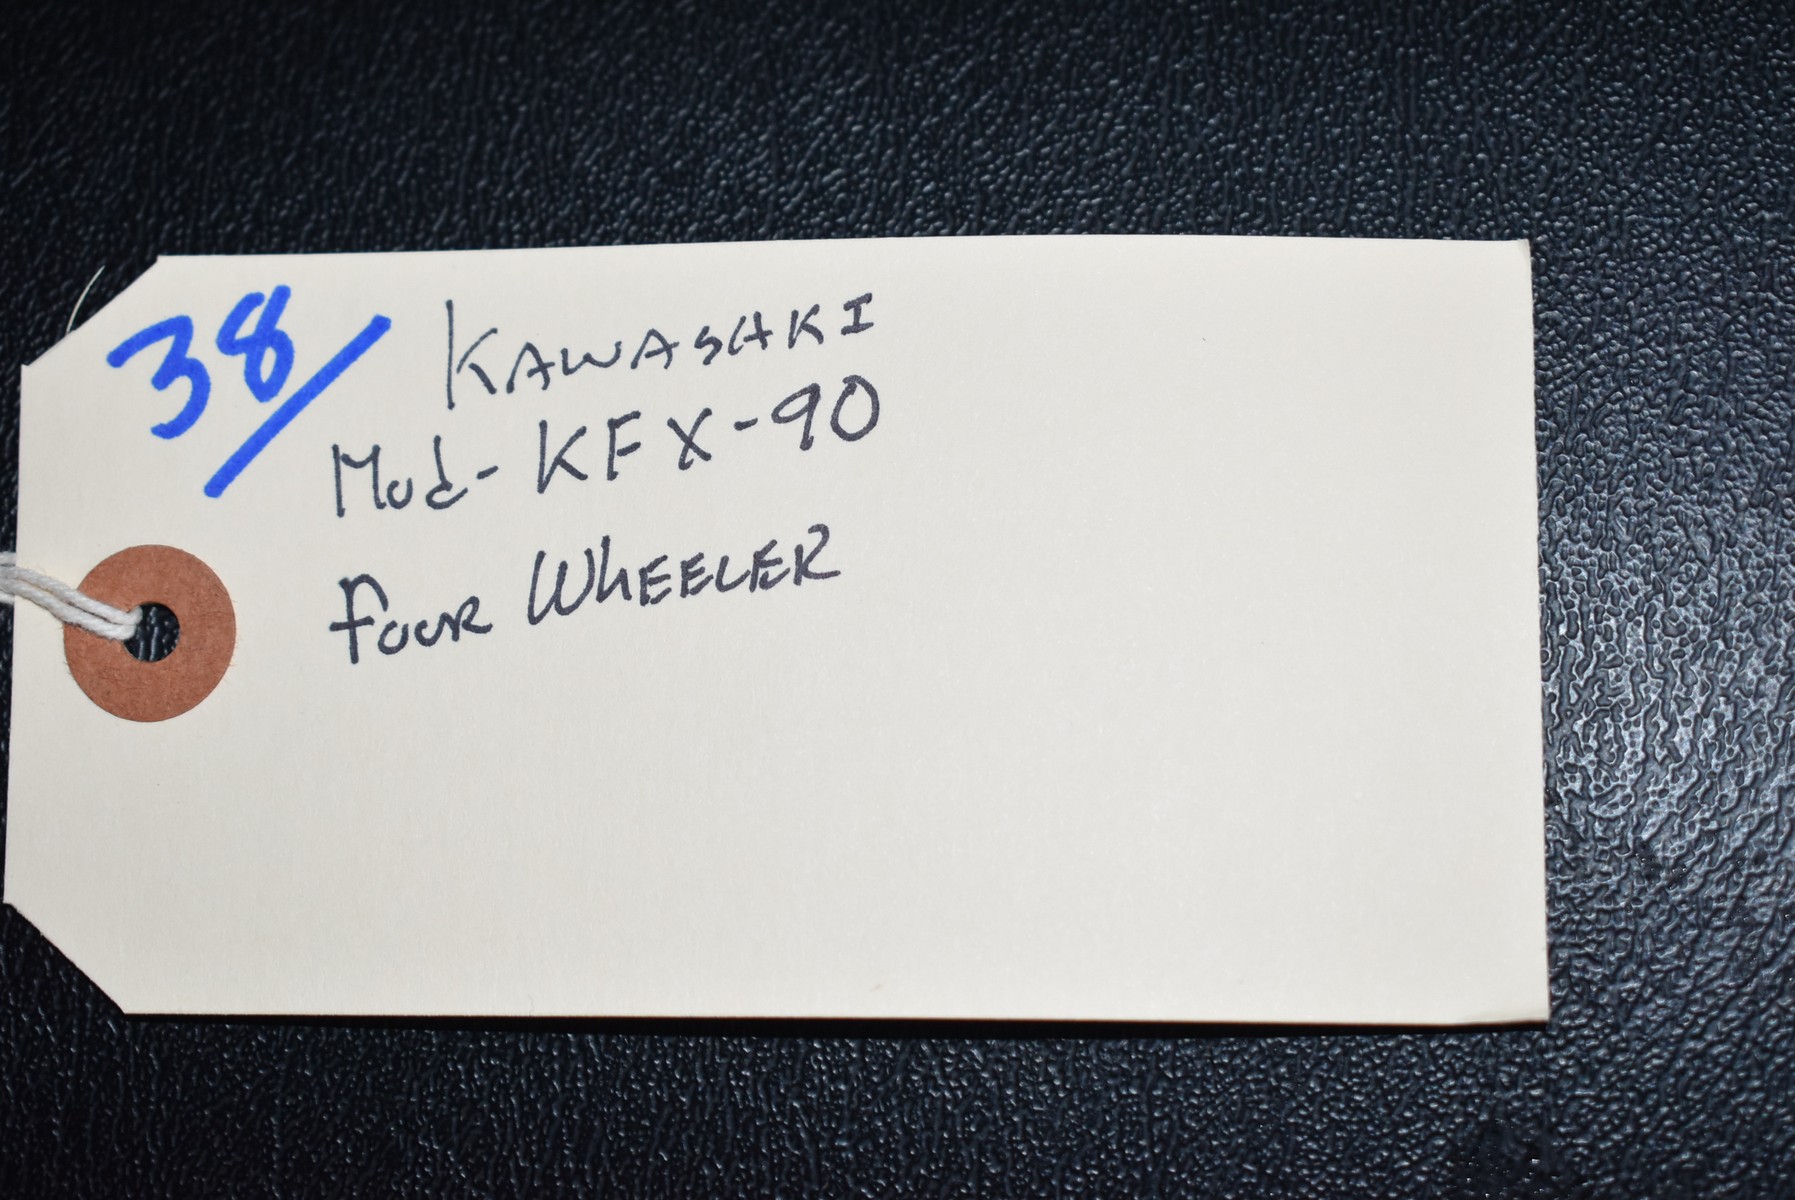 38/ KAWASAKI
Mod-KFX-90
Four WHEELER